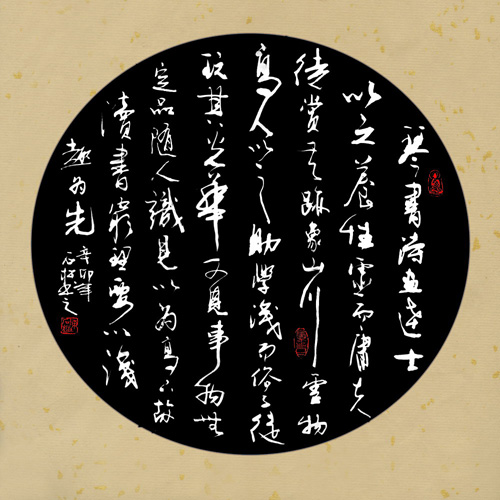 琴書诗画達士
以之養性靈而庸夫
徒赏其跡象山川雲物
高人以之助學識而俗子徒
玩其光華可見事物無
定品隨人識見以為高下故
讀書窮理要以識
趣為先
辛卯年